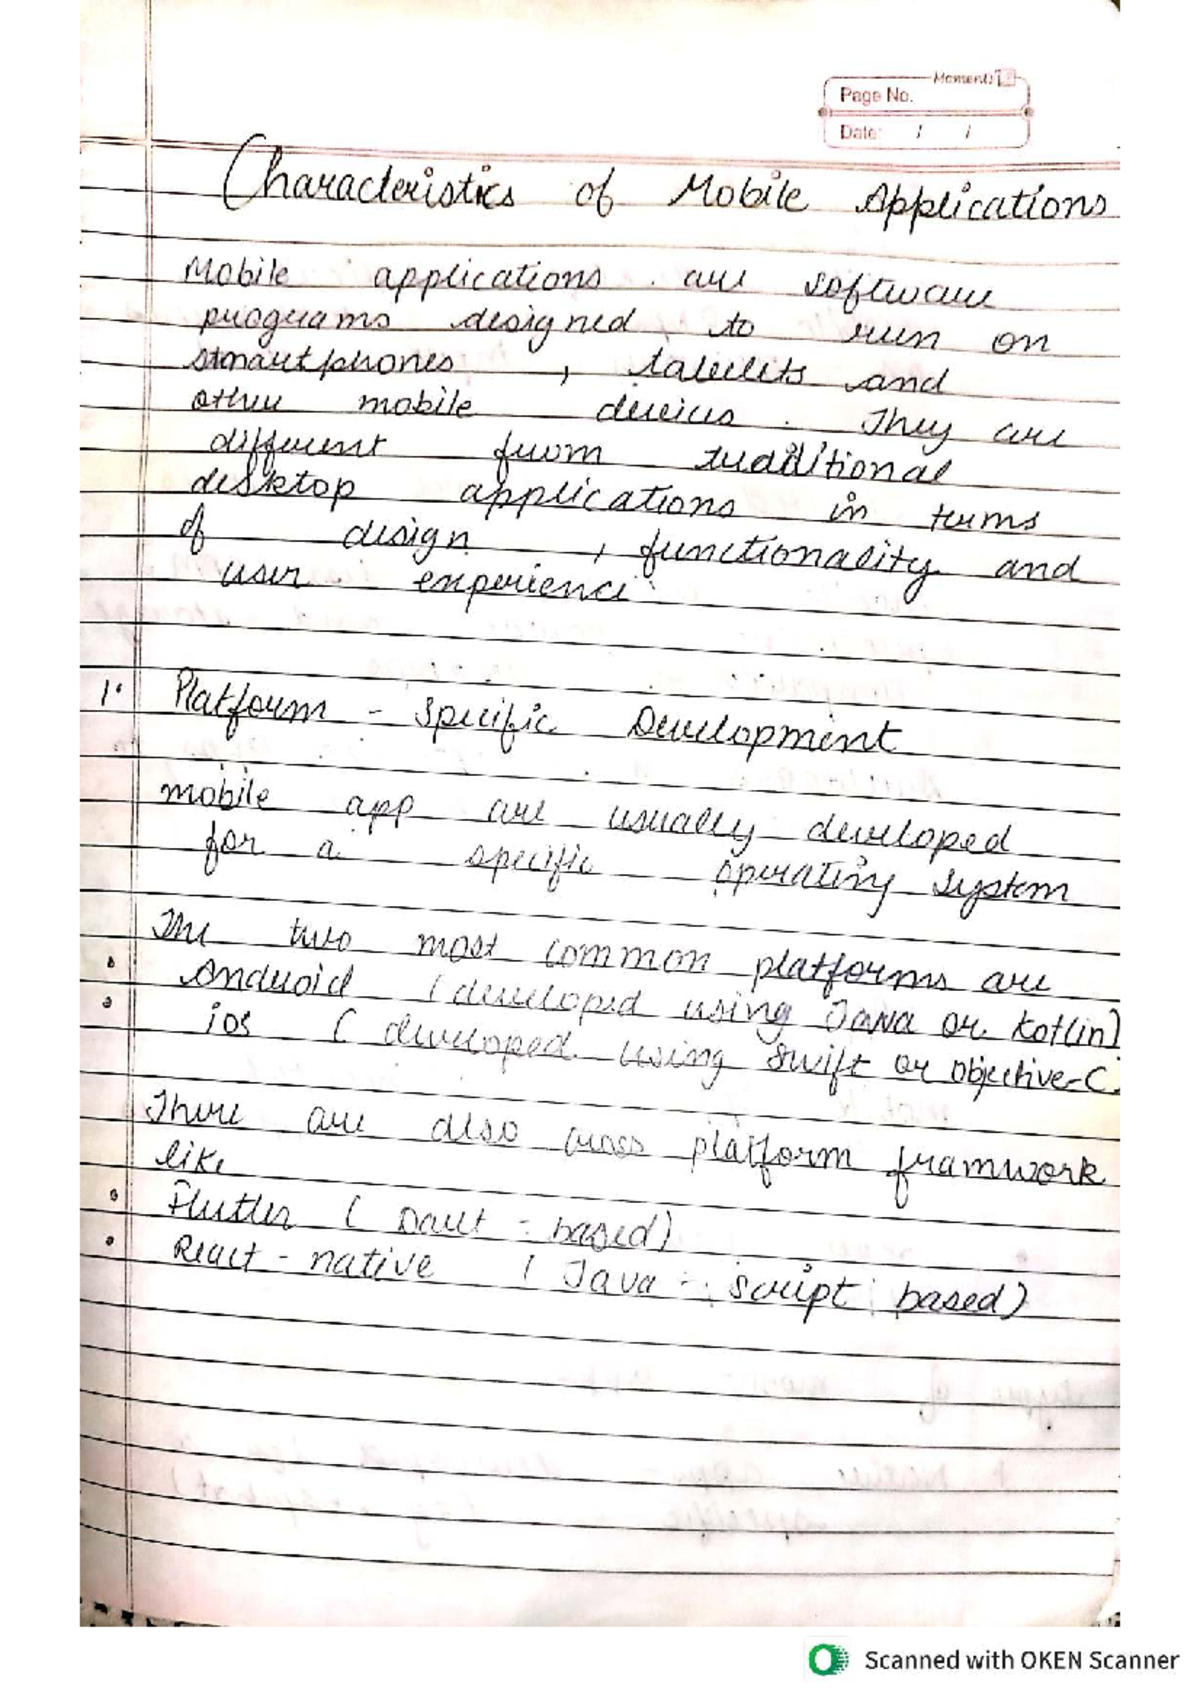 Moments
Page No.
Date: / /
Characteristics of Mobile Applications
Mobile applications are software
programs designed to run on
smartphones , tablets and
other mobile devices . They are
different from traditional
desktop applications in terms
of design , functionality and
user experience
1. Platform - Specific Development
mobile app are usually developed
for a specific operating system
The two most common platforms are
• Android (developed using Java or Kotlin)
• ios ( developed using Swift or objective-C
There are also cross platform framwork
like
• Flutter ( Dart - based)
• React - native ( Java - script based)
Scanned with OKEN Scanner